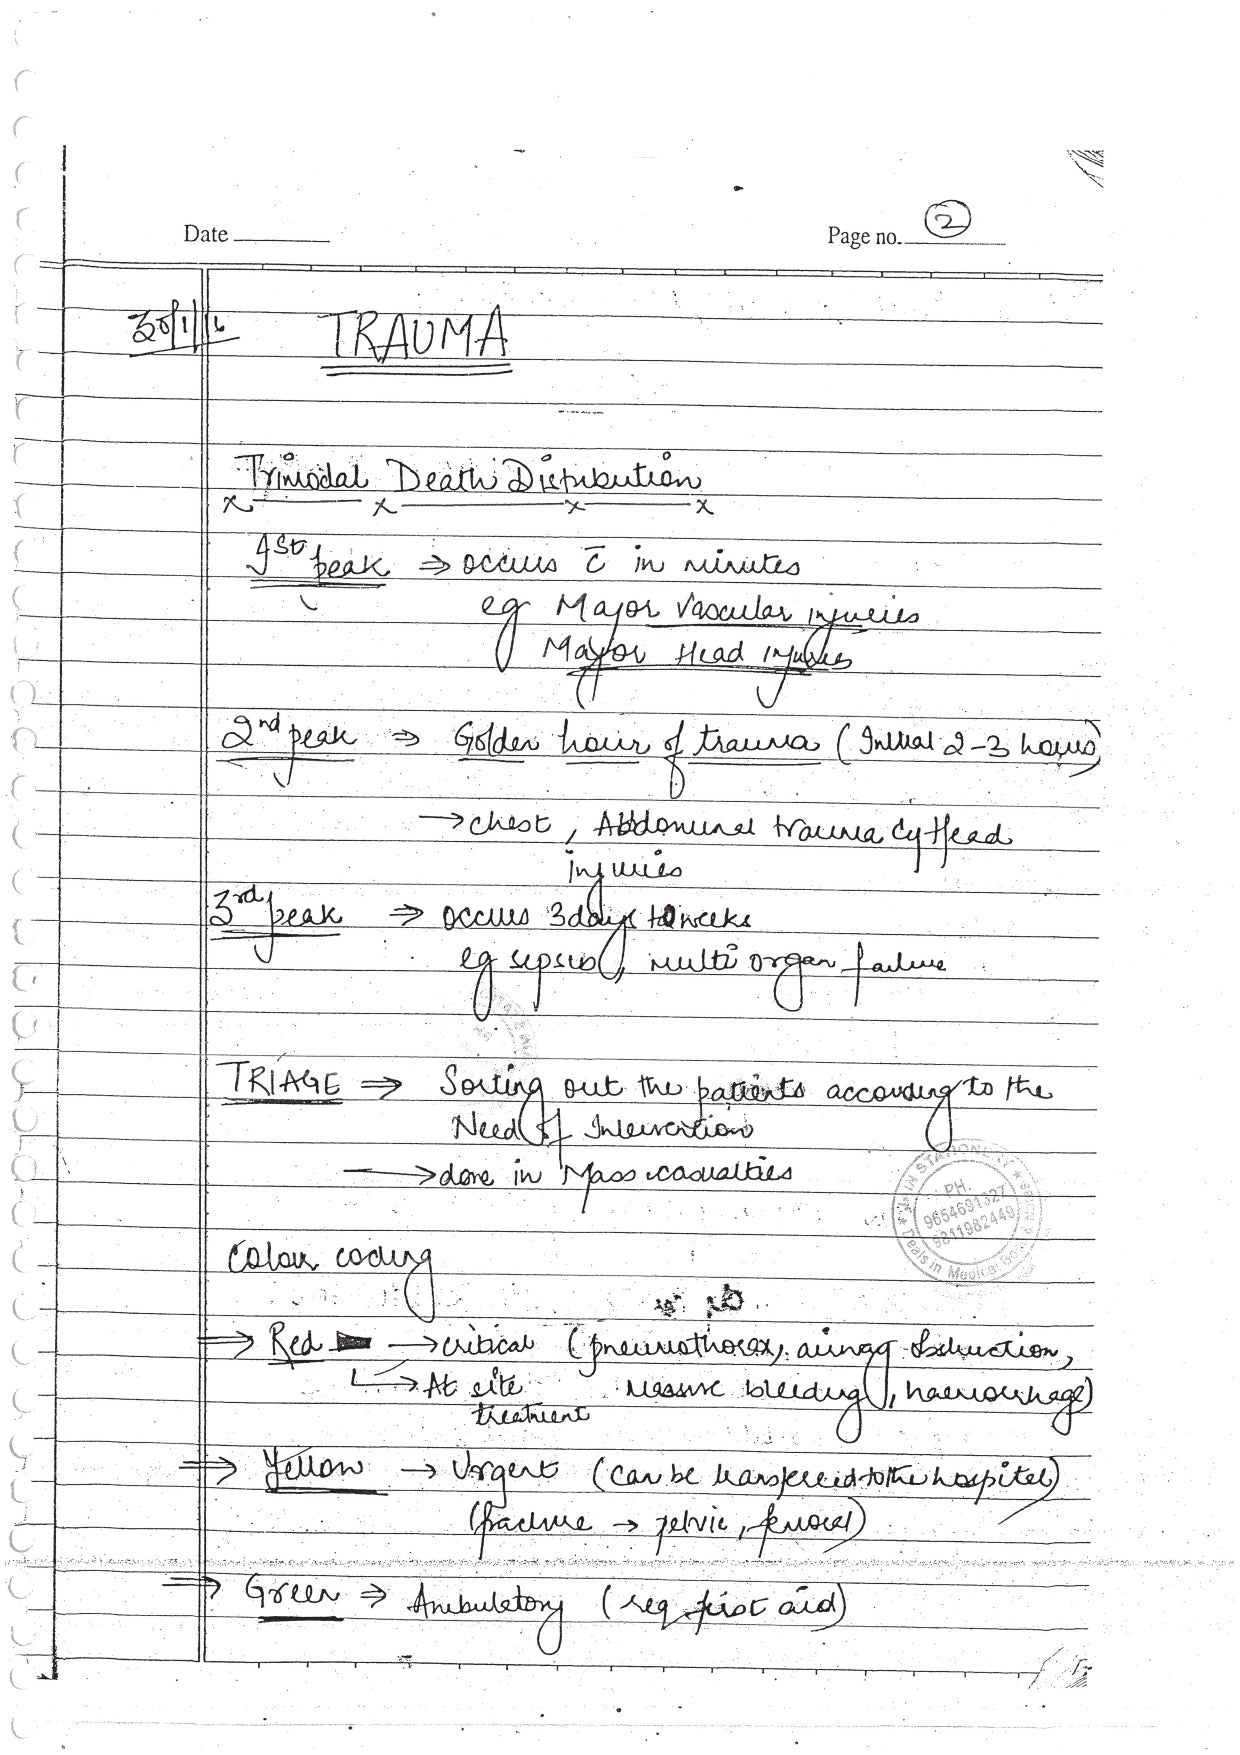 Date
Page no. 2
30/1/16
TRAUMA
Trimodal Death Distribution
1st peak ⇒ occurs c̄ in minutes
eg Major vascular injuries
Major Head injuries
2nd peak ⇒ Golden hour of trauma (Initial 2-3 hours)
→ chest, Abdominal trauma Head
injuries
3rd peak ⇒ occurs 3 days to weeks
eg sepsis, multi organ failure
TRIAGE ⇒ Sorting out the patients according to the
Need of Intervention
→ done in Mass casualties
IN STATIONERY
PH.
9654691327
9811982449
Deals in Medical Books
Colour coding
⇒ Red → critical (pneumothorax, airway obstruction,
↳ At site massive bleeding, haemorrhage)
treatment
⇒ Yellow → Urgent (can be transfered to the hospital)
(fracture → pelvic, femoral)
⇒ Green ⇒ Ambulatory (req first aid)